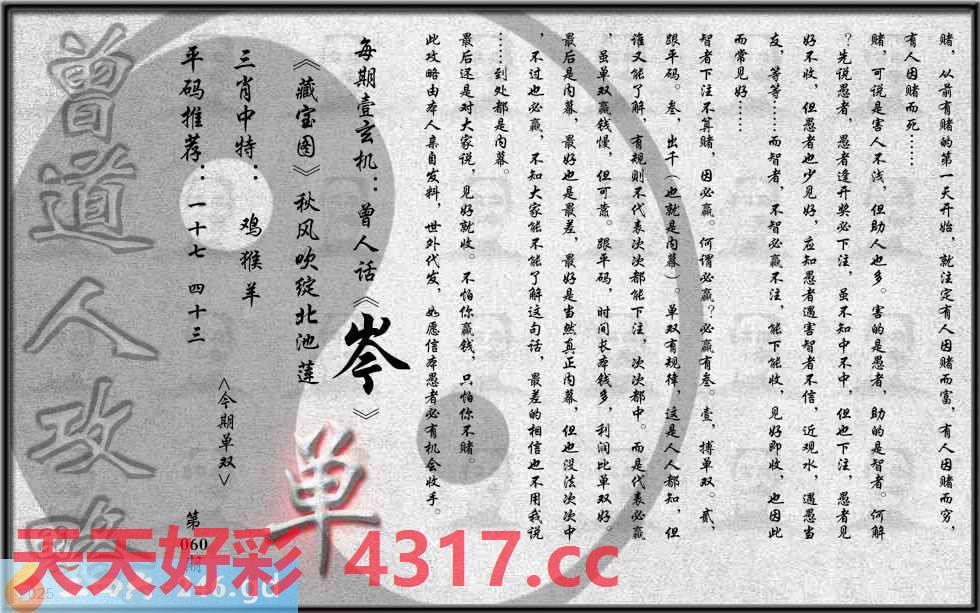 赌，从前有赌的第一天开始，就注定有人因赌而富，有人因赌而穷，
有人因赌而死……
赌，可说是害人不浅，但助人也多。害的是愚者，助的是智者。何解
？先说愚者，愚者逢开奖必下注，虽不知中不中，但也下注，愚者见
好不收，但愚者也少见好，应知愚者遇害智者不信，近观水，遇愚当
友，等等……而智者，不智必赢不注，能下能收，见好即收，也因此
而常见好……
智者下注不算赌，因必赢。何谓必赢？必赢有叁。壹，搏单双。贰，
跟平码。叁，出千（也就是内幕）。单双有规律，这是人人都知，但
谁又能了解，有规则不代表次次都能下注，次次都中。而是代表必赢
，虽单双赢钱慢，但可蓄。跟平码，时间长本钱多，利润比单双好。
最后是内幕，最好也是最差，最好是当然真正内幕，但也没法次次中
，不过也必赢，不知大家能不能了解这句话，最差的相信也不用我说
……到处都是内幕。
最后还是对大家说，见好就收。不怕你赢钱，只怕你不赌。
此攻略由本人亲自发料，世外代发，如愿信本愚者必有机会收手。
每期壹玄机：曾人话《岑》
《藏宝图》秋风吹绽北池莲
单
三肖中特：鸡猴羊
<今期单双>
平码推荐：一十七 四十三
第
060
期
曾道人攻略
天天好彩 4317.cc
2025
246.gd